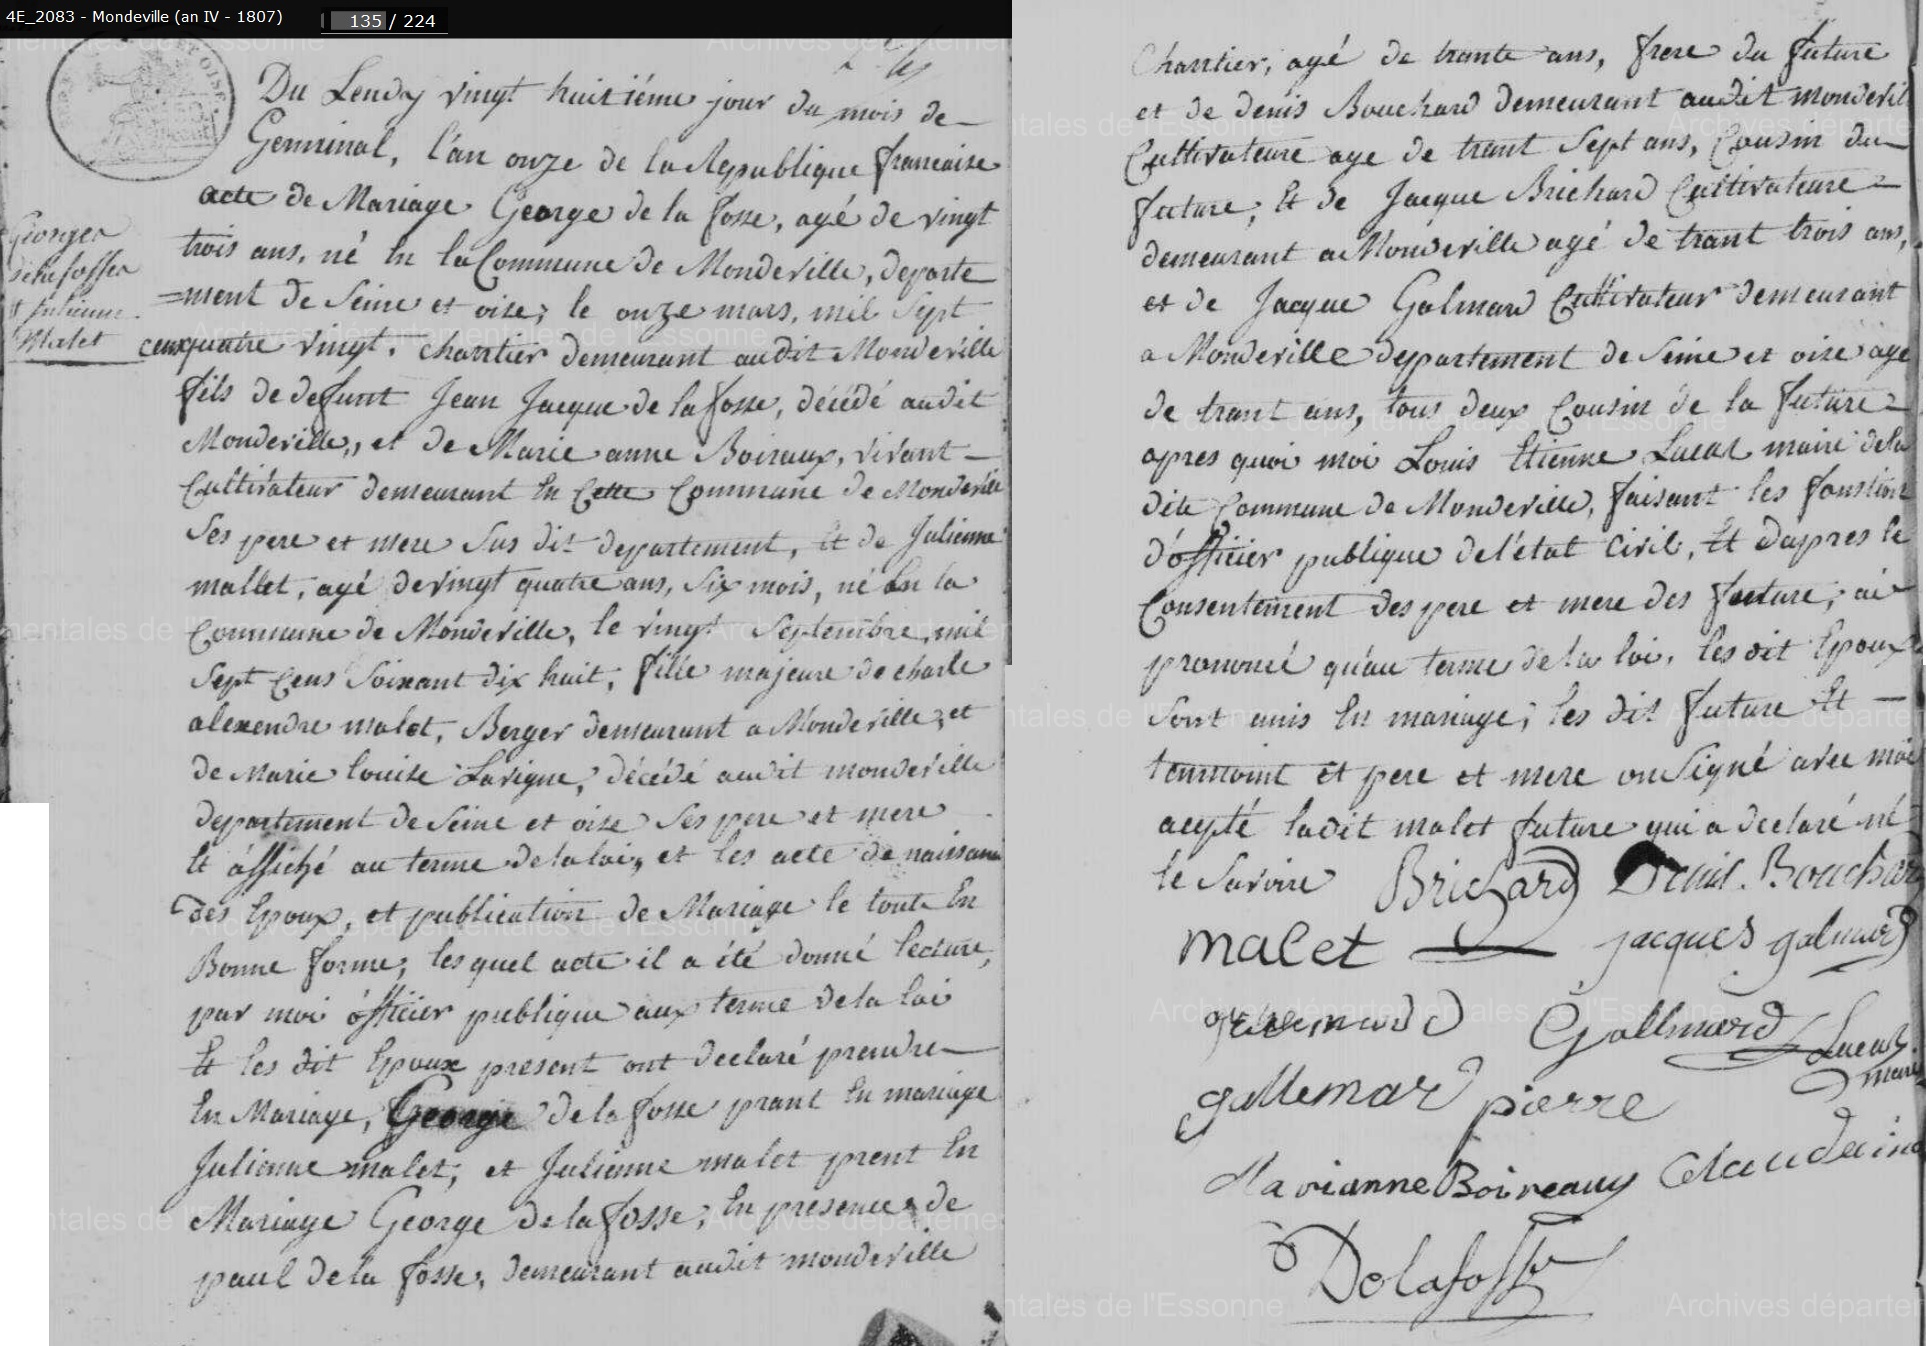 4E_2083 - Mondeville (an IV - 1807)
135 / 224
Du Lendy vingt huitiéme jour du mois de
Germinal, l'an onze de la Republique francaise
acte de Mariage George de la fosse, agé de vingt
trois ans, né En la Commune de Mondeville, departe
=ment de Seine et oise, le onze mars, mil Sept
cens quatre vingt. chartier demeurant audit Mondeville
fils de defunt Jean Jacque de la fosse, décédé audit
Monderville, et de Marie anne Boiraux, vivant
Cultivateur demeurant En Cette Commune de Mondeville
Ses pere et mere Sus dit departement, Et de Julienne
mallet, agé de vingt quatre ans, Six mois, né En la
Commune de Mondeville, le vingt Septembre, mil
Sept Cens Soixant dix huit, fille majeure de charle
alexendre malet, Berger demeurant a Mondeville, et
de Marie louise Lavigne, décédé audit mondeville
departement de Seine et oise Ses pere et mere
Et affiché au terme de la loi, et les acte de naissance
des Epoux, et publication de Mariage le tout En
Bonne forme, les quel acte il a été donné lecture,
par moi officier publique aux terme de la loi
Et les dit Epoux present ont declaré prendre
En Mariage, George de la fosse prant En mariage
Julienne malet, et Julienne malet prent En
Mariage George de la fosse, En presence de
paul de la fosse, demeurant audit mondeville
Georges
delafosse
et Julienne
Malet
Chartier, agé de trante ans, frere du future
et de denis Bouchard demeurant audit mondevil
Cultivateure age de trant Sept ans, Cousin du
future, Et de Jacque Brichard Cultivateure
demeurant a Mondeville agé de trant trois ans,
et de Jacque Galmard Cultivateur demeurant
a Mondeville departement de Seine et oise age
de trant ans, tous deux Cousin de la future
apres quoi moi Louis Etienne Lucas maire de la
dite Commune de Mondeville, faisant les fonstion
d'officier publique de l'état Civil, Et dapres le
Consentement des pere et mere des future, ai
prononcé qu'au terme de la loi, les dit Epoux
Sont unis En mariage, les dit future Et
temmoint et pere et mere on Signé avec moi
acepté ladit malet future qui a declaré né
le Savoire Brichard Denis. Bouchard
malet jacques galmard
Gallmard Lucas
maire
gallemar pierre
Marianne Boireaux Claude
Delafosse